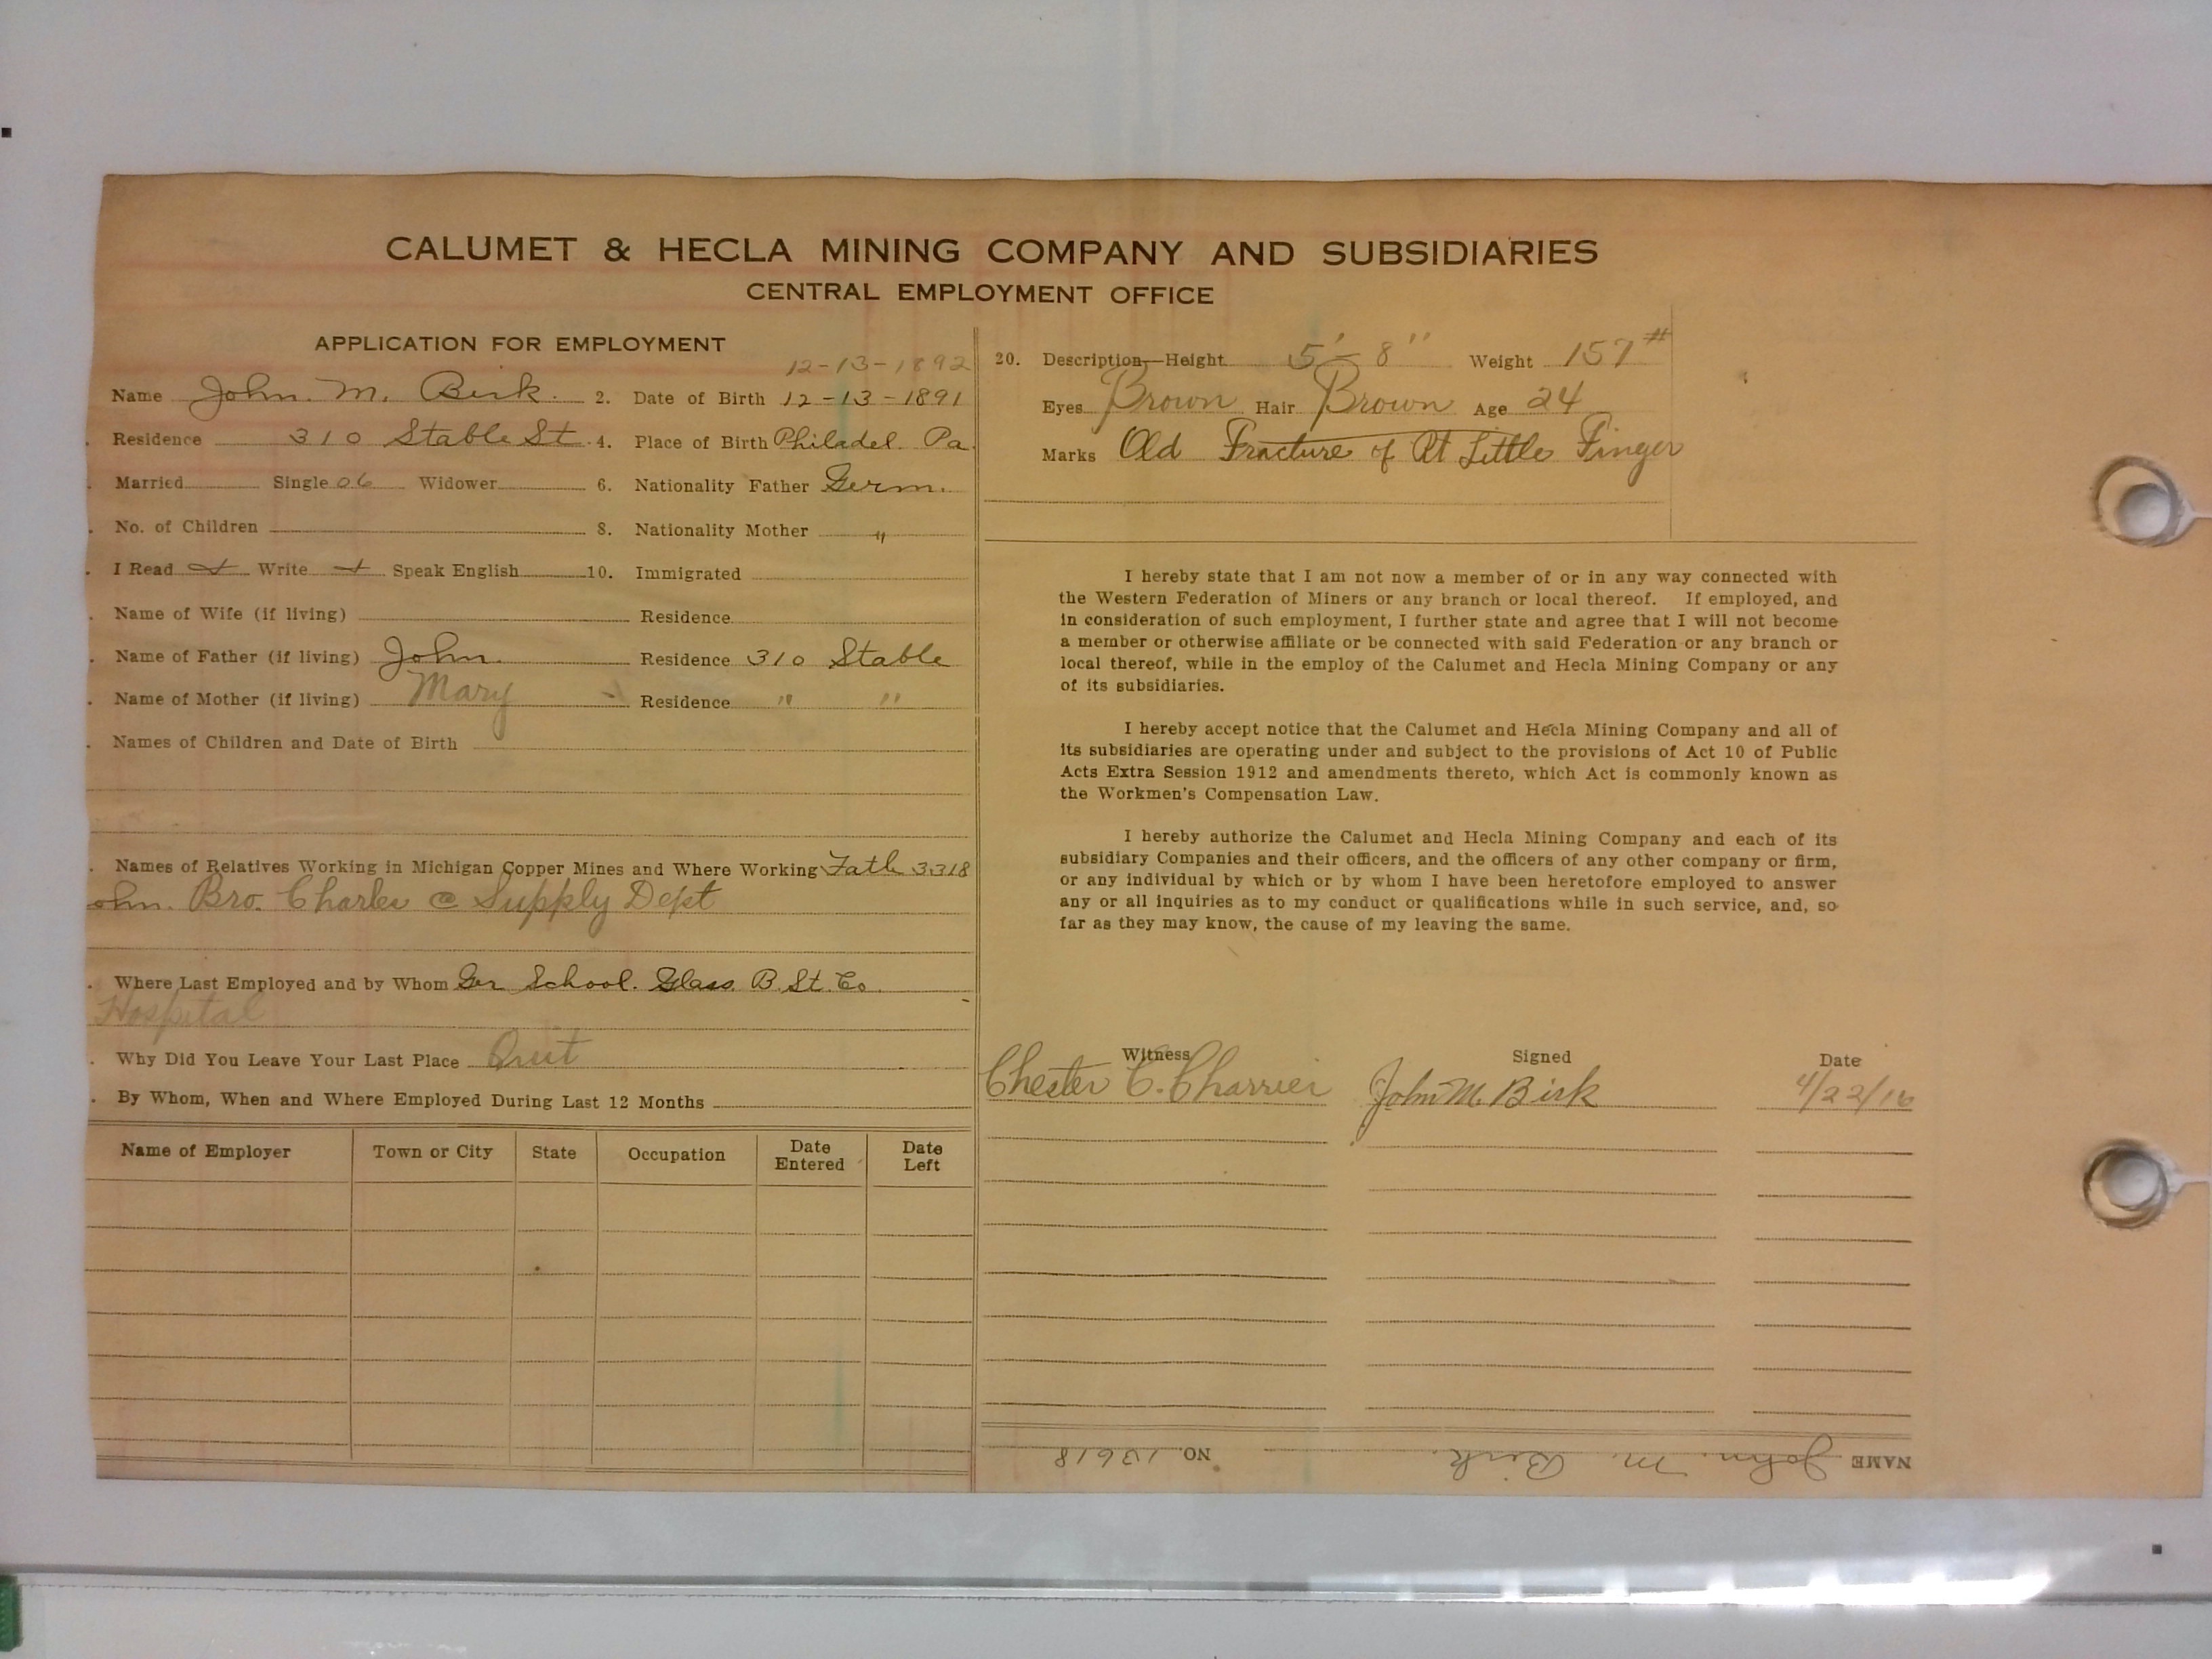 CALUMET & HECLA MINING COMPANY AND SUBSIDIARIES
CENTRAL EMPLOYMENT OFFICE
APPLICATION FOR EMPLOYMENT
12-13-1892
Name John. M. Birk. 2. Date of Birth 12-13-1891
Residence 310 Stable St. 4. Place of Birth Philadel. Pa.
Married Single 06 Widower 6. Nationality Father Germ.
No. of Children 8. Nationality Mother "
I Read Write Speak English 10. Immigrated
Name of Wife (if living) Residence
Name of Father (if living) John. Residence 310 Stable
Name of Mother (if living) Mary Residence " "
Names of Children and Date of Birth
Names of Relatives Working in Michigan Copper Mines and Where Working Fath 3318
ohn. Bro. Charles @ Supply Dept
Where Last Employed and by Whom School. Glass. B. St. Co.
Hospital
Why Did You Leave Your Last Place Quit
By Whom, When and Where Employed During Last 12 Months
Name of Employer Town or City State Occupation Date Entered Date Left
20. Description—Height 5'-8" Weight 157#
Eyes Brown Hair Brown Age 24
Marks Old Fracture of Rt Little Finger
I hereby state that I am not now a member of or in any way connected with
the Western Federation of Miners or any branch or local thereof. If employed, and
in consideration of such employment, I further state and agree that I will not become
a member or otherwise affiliate or be connected with said Federation or any branch or
local thereof, while in the employ of the Calumet and Hecla Mining Company or any
of its subsidiaries.
I hereby accept notice that the Calumet and Hecla Mining Company and all of
its subsidiaries are operating under and subject to the provisions of Act 10 of Public
Acts Extra Session 1912 and amendments thereto, which Act is commonly known as
the Workmen's Compensation Law.
I hereby authorize the Calumet and Hecla Mining Company and each of its
subsidiary Companies and their officers, and the officers of any other company or firm,
or any individual by which or by whom I have been heretofore employed to answer
any or all inquiries as to my conduct or qualifications while in such service, and, so
far as they may know, the cause of my leaving the same.
Witness Signed Date
Chester C. Charrier John M. Birk 4/22/16
NAME John. M. Birk. NO. 13618